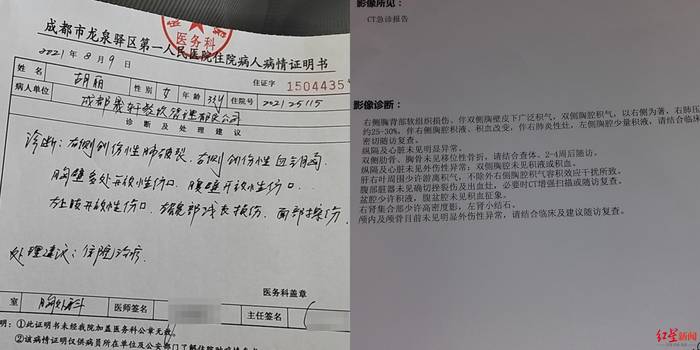 成都市龙泉驿区第一人民医院住院病人病情证明书
医务科
2021年8月9日
住证字 1504435
姓名 胡丽 性别 女 年龄 33岁 住院号 202125115
病人单位
诊断及处理建议
诊断：右侧创伤性肺破裂、右侧创伤性血气胸
胸壁多处开放性伤口、腹壁开放性伤口
左上肢开放性伤口、面部擦伤
处理建议：住院治疗
医务科盖章
室 胸外科 医师签名 主任签名
明：①此证明书未经我院加盖医务科公章无效。
影像所见：
CT急诊报告
影像诊断：
右侧胸背部软组织损伤、伴双侧胸壁皮下广泛积气，双侧胸腔积气，以右侧为著，右肺压
约25-30%，伴右侧胸腔积液、积血改变，伴右肺炎性灶，左侧胸腔少量积液，请结合临床
密切随访复查。
纵隔及心脏未见明显异常。
双侧肋骨、胸骨未见移位性骨折，请结合查体、2-4周后随访。
纵隔及心脏未见外伤性异常；双侧胸腔未见积液或积血。
肝右叶周围少许游离积气，不除外右侧胸腔积气容积效应干扰所致。
腹部脏器未见确切挫裂伤及出血灶，必要时CT增强扫描或随访复查。
盆腔少许积液，腹盆腔未见积血征象。
右肾集合部少许高密度影，左肾小结石。
颅内及颅骨目前未见明显外伤性异常，请结合临床及建议随访复查。
红星新闻